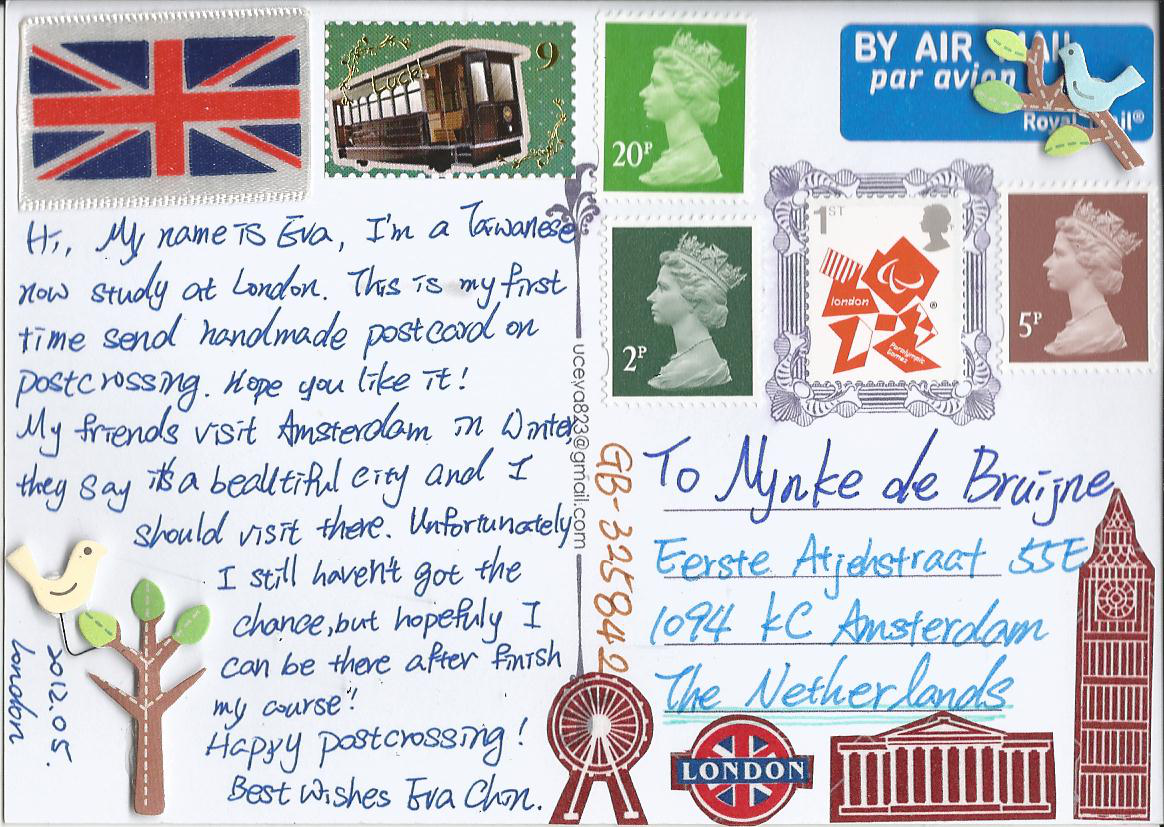 Lucky
9
20P
BY AIR MAIL
par avion
Royal Mail®
Hi, My name is Eva, I'm a Taiwanese
now study at London. This is my first
time send handmade postcard on
postcrossing. Hope you like it!
My friends visit Amsterdam in Winter,
they say it's a beautiful city and I
should visit there. Unfortunately
I still haven't got the
chance, but hopefuly I
can be there after finish
my course!
Happy postcrossing!
Best Wishes Eva Chin.
2012.05.
London
uceva823@gmail.com
GB-3258842
2P
1ST
london
®
Paralympic
Games
5P
To Mynke de Bruijne
Eerste Atjehstraat 55E
1094 KC Amsterdam
The Netherlands
LONDON